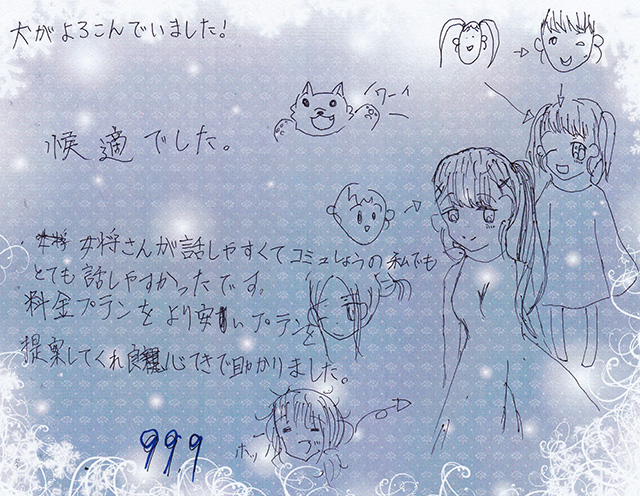 犬がよろこんでいました！
ワーイ
候適でした。
女将さんが話しやすくてコミュしょうの私でも
とても話しやすかったです。
料金プランをより安いプランを
提案してくれ良心てきで助かりました。
ホッ
999